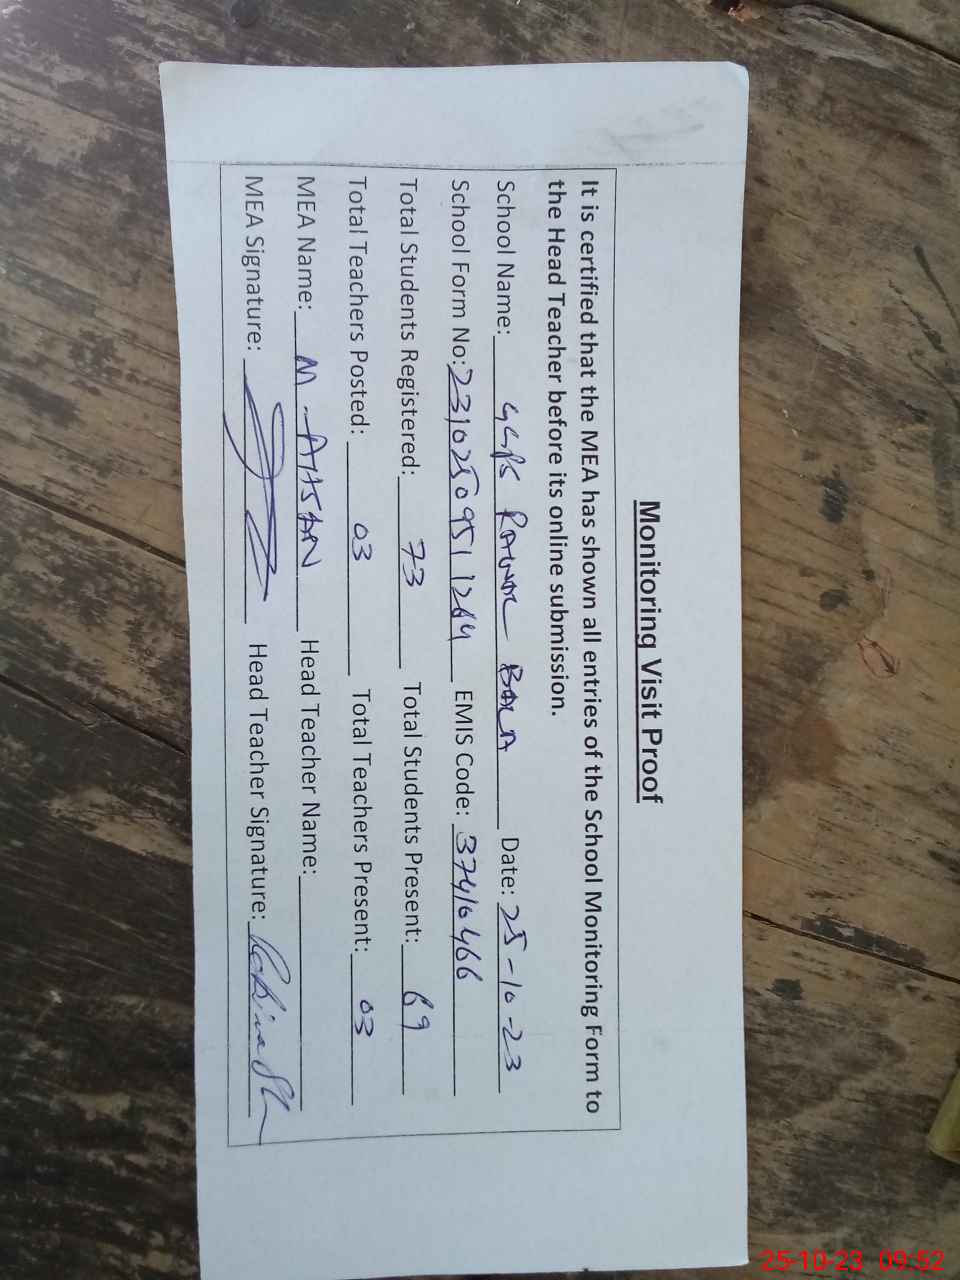 Monitoring Visit Proof
It is certified that the MEA has shown all entries of the School Monitoring Form to
the Head Teacher before its online submission.
School Name: BALA Date: 25-10-23
School Form No: 2310250951264 EMIS Code: 37410466
Total Students Registered: 73 Total Students Present: 69
Total Teachers Posted: 03 Total Teachers Present: 03
MEA Name: M. AHSAN Head Teacher Name:
MEA Signature: Head Teacher Signature:
25-10-23 09:52